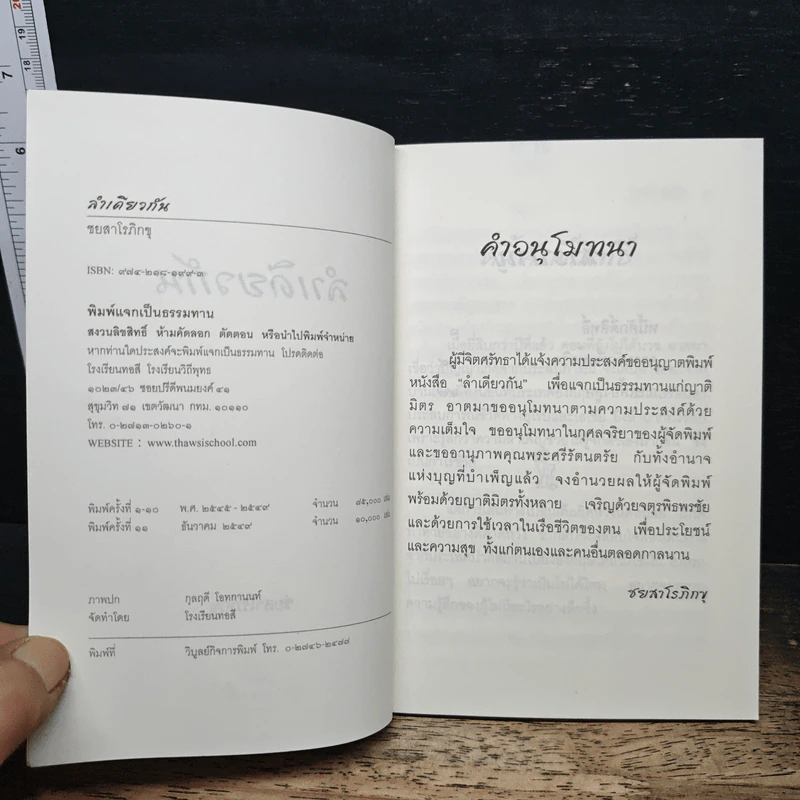 ลำเดียวกัน
ชยสาโรภิกขุ
ISBN: ๙๗๔-๒๑๘-๑๙๙-๓
พิมพ์แจกเป็นธรรมทาน
สงวนลิขสิทธิ์ ห้ามคัดลอก ตัดตอน หรือนำไปพิมพ์จำหน่าย
หากท่านใดประสงค์จะพิมพ์แจกเป็นธรรมทาน โปรดติดต่อ
โรงเรียนทอสี โรงเรียนวิถีพุทธ
๑๐๒๓/๔๖ ซอยปรีดีพนมยงค์ ๔๑
สุขุมวิท ๗๑ เขตวัฒนา กทม. ๑๐๑๑๐
โทร. ๐-๒๗๑๓-๐๒๖๐-๑
WEBSITE : www.thawsischool.com
พิมพ์ครั้งที่ ๑-๑๐ พ.ศ. ๒๕๔๕ - ๒๕๔๙ จำนวน ๗๕,๐๐๐ เล่ม
พิมพ์ครั้งที่ ๑๑ ธันวาคม ๒๕๔๙ จำนวน ๑๐,๐๐๐ เล่ม
ภาพปก กุลฤดี โอทกานนท์
จัดทำโดย โรงเรียนทอสี
พิมพ์ที่ วิบูลย์กิจการพิมพ์ โทร. ๐-๒๗๔๖-๒๔๗๗
คำอนุโมทนา
ผู้มีจิตศรัทธาได้แจ้งความประสงค์ขออนุญาตพิมพ์
หนังสือ “ลำเดียวกัน” เพื่อแจกเป็นธรรมทานแก่ญาติ
มิตร อาตมาขออนุโมทนาตามความประสงค์ด้วย
ความเต็มใจ ขออนุโมทนาในกุศลจริยาของผู้จัดพิมพ์
และขออานุภาพคุณพระศรีรัตนตรัย กับทั้งอำนาจ
แห่งบุญที่บำเพ็ญแล้ว จงอำนวยผลให้ผู้จัดพิมพ์
พร้อมด้วยญาติมิตรทั้งหลาย เจริญด้วยจตุรพิธพรชัย
และด้วยการใช้เวลาในเรือชีวิตของตน เพื่อประโยชน์
และความสุข ทั้งแก่ตนเองและคนอื่นตลอดกาลนาน
ชยสาโรภิกขุ